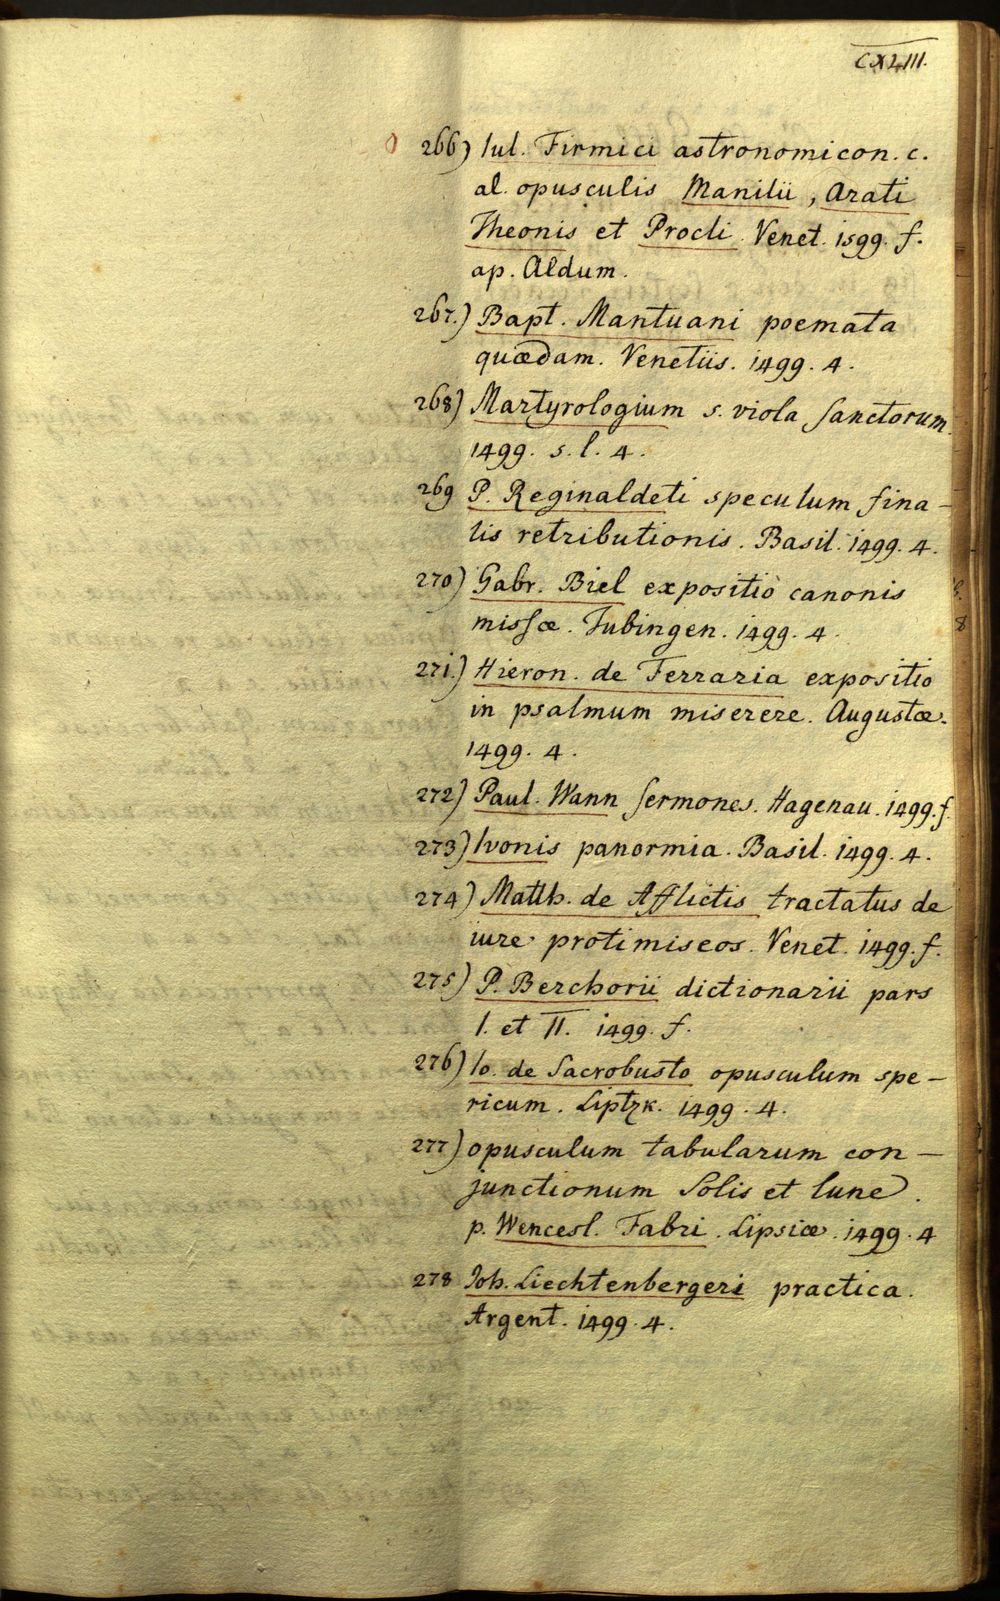 CXLIII.
266) Iul. Firmici astronomicon. c.
al. opusculis Manilii, Arati
Theonis et Procli. Venet. 1599. f.
ap. Aldum.
267.) Bapt. Mantuani poemata
quædam. Venetiis. 1499. 4.
268) Martyrologium s. viola Sanctorum.
1499. s. l. 4.
269 P. Reginaldeti speculum fina-
lis retributionis. Basil. 1499. 4.
270) Gabr. Biel expositio canonis
missæ. Tubingen. 1499. 4.
271.) Hieron. de Ferraria expositio
in psalmum miserere. Augustæ.
1499. 4.
272) Paul. Wann Sermones. Hagenau. 1499. f.
273) Ivonis panormia. Basil. 1499. 4.
274) Matth. de Afflictis tractatus de
iure protimiseos. Venet. 1499. f.
275) P. Berchorii dictionarii pars
I. et II. 1499. f.
276) Io. de Sacrobusto opusculum spe-
ricum. Liptzk. 1499. 4.
277) opusculum tabularum con-
junctionum Solis et lune.
p. Wencesl. Fabri. Lipsiæ. 1499. 4
278 Joh. Liechtenbergers practica.
Argent. 1499. 4.